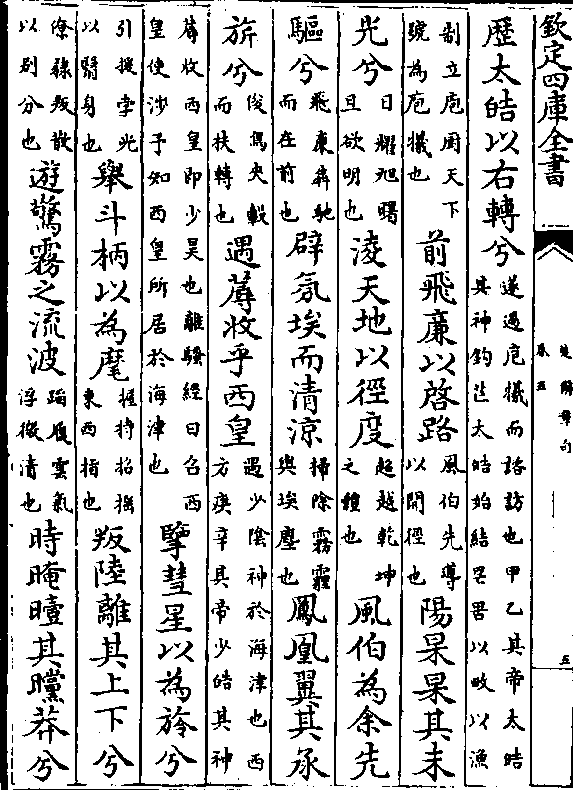 欽定四庫全書
楚辭章句
卷五
五
歴太皓以右轉兮遂過庖犧而諮訪也甲乙其帝太皓其神鈎芒太皓始結罔罟以畋以漁
制立庖厨天下號為庖犧也前飛廉以啓路風伯先導以開徑也陽杲杲其未
光兮日耀旭曙旦欲明也淩天地以徑度超越乾坤之體也風伯為余先
驅兮飛廉奔馳而在前也辟氛埃而清涼掃除霧霾與埃塵也鳳凰翼其承
旂兮俊偶夾轂而扶轉也遇蓐收乎西皇遇少陰神於海津也西方庚辛其帝少皓其神
蓐收西皇即少昊也離騷經曰召西皇使涉予知西皇所居於海津也擥彗星以為旍兮
引援孛光以翳身也舉斗柄以為麾握持招搖東西指也叛陸離其上下兮
繚隸叛散以别分也遊驚霧之流波蹈履雲氣浮微清也時晻曀其曭莽兮